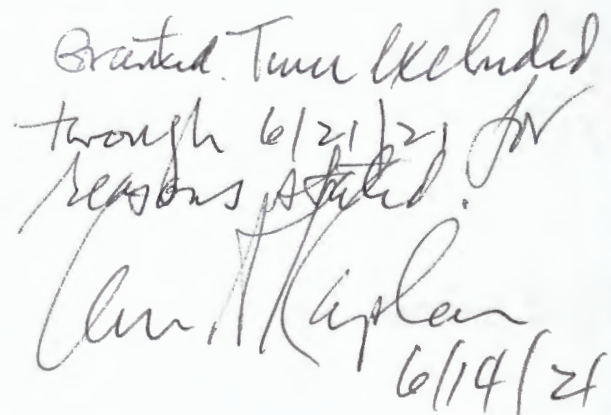 Granted. Time excluded
through 6/21/21 for
reasons stated.
Kaplan
6/14/21